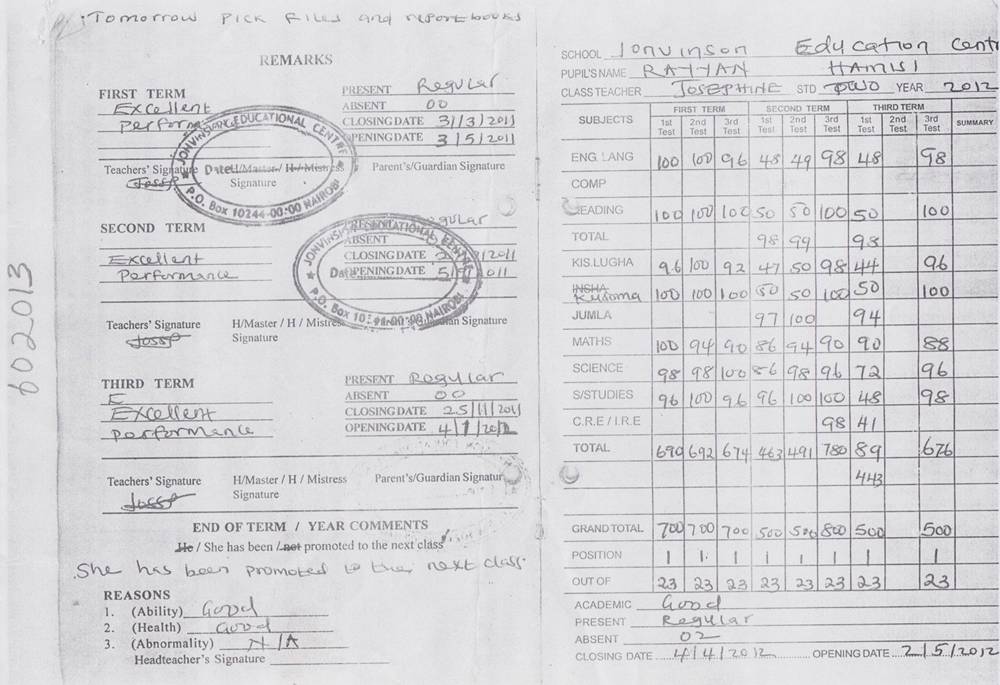 Tomorrow pick files and report books
REMARKS
FIRST TERM
Excellent
Perform
PRESENT Regular
ABSENT 00
CLOSING DATE 31/3/2011
OPENING DATE 3/5/2011
Teachers' Signature H/Master / H / Mistress Signature Parent's/Guardian Signature
JONVINSIANG EDUCATIONAL CENTRE
Date
P.O. Box 10244-00100 NAIROBI
SECOND TERM
Excellent
Performance
Regular
ABSENT
CLOSING DATE /2011
OPENING DATE 5/ /2011
Teachers' Signature H/Master / H / Mistress Signature Guardian Signature
THIRD TERM
E
Excellent
performance
PRESENT Regular
ABSENT 00
CLOSING DATE 25/11/2011
OPENING DATE 4/1/2012
Teachers' Signature H/Master / H / Mistress Signature Parent's/Guardian Signatur
END OF TERM / YEAR COMMENTS
He / She has been / not promoted to the next class
She has been promoted to the next class.
REASONS
1. (Ability) Good
2. (Health) Good
3. (Abnormality) N/A
Headteacher's Signature
602013
SCHOOL Jonvinson Education Cent
PUPIL'S NAME RAYYAN HAMISI
CLASS TEACHER JOSEPHINE STD TWO YEAR 2012
SUBJECTS FIRST TERM SECOND TERM THIRD TERM SUMMARY
1st Test 2nd Test 3rd Test 1st Test 2nd Test 3rd Test 1st Test 2nd Test 3rd Test
ENG. LANG 100 100 96 48 49 98 48 98
COMP
READING 100 100 100 50 50 100 50 100
TOTAL 98 99 98
KIS. LUGHA 96 100 92 47 50 98 44 96
INSHA Kusoma 100 100 100 50 50 100 50 100
JUMLA 97 100 94
MATHS 100 94 90 86 94 90 90 88
SCIENCE 98 98 100 86 98 96 72 96
S/STUDIES 96 100 96 96 100 100 48 98
C.R.E / I.R.E 98 41
TOTAL 690 692 674 463 491 780 89 676
443
GRAND TOTAL 700 700 700 500 500 800 500 500
POSITION 1 1 1 1 1 1 1 1
OUT OF 23 23 23 23 23 23 23 23
ACADEMIC Good
PRESENT Regular
ABSENT 02
CLOSING DATE 4/4/2012 OPENING DATE 2/5/2012